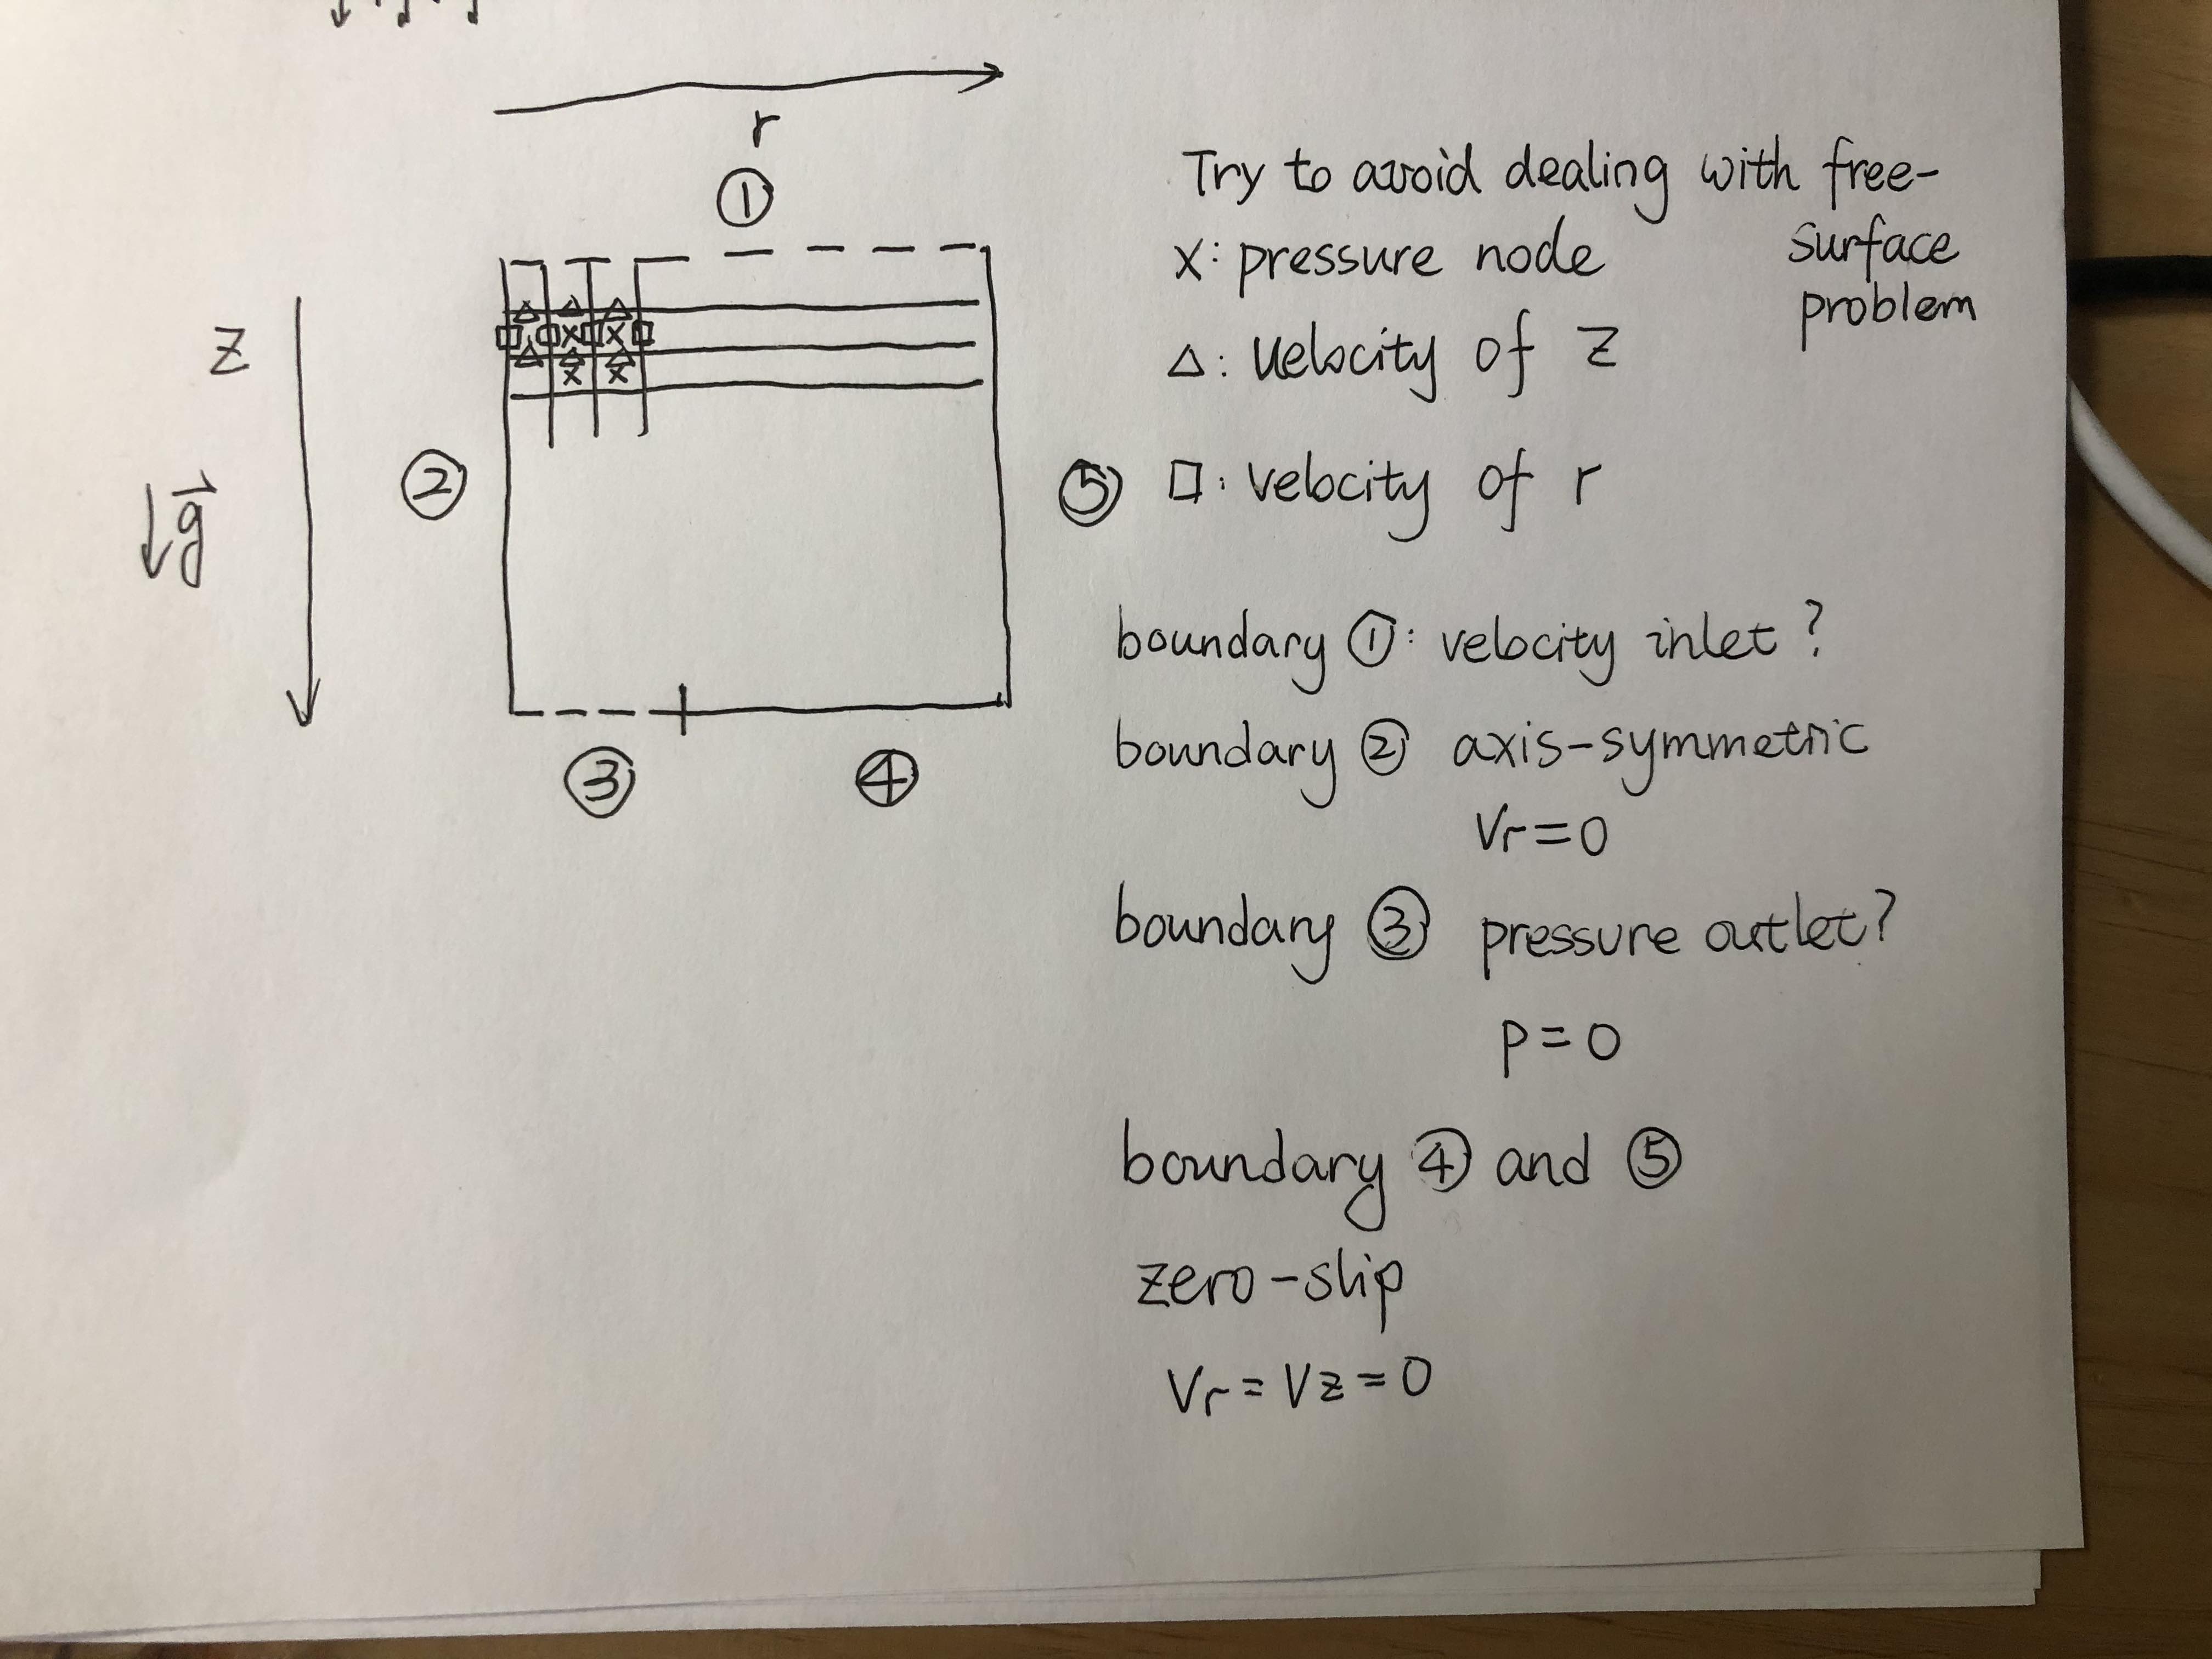 r
①
Try to avoid dealing with free-
surface
problem
x: pressure node
△: velocity of z
□: velocity of r
z
g
②
⑤
③
④
boundary ①: velocity inlet?
boundary ② axis-symmetric
Vr=0
boundary ③ pressure outlet?
p=0
boundary ④ and ⑤
zero-slip
Vr=Vz=0